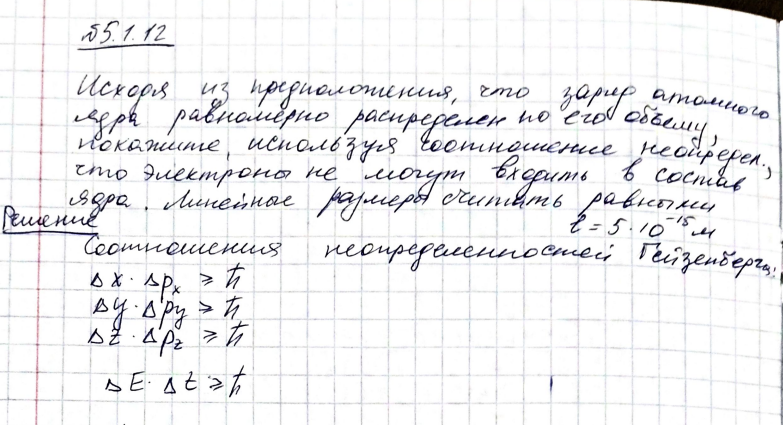 №5.1.12
Исходя из предположения, что заряд атомного
ядра равномерно распределен по его объему,
покажите, используя соотношение неопредел.,
что электроны не могут входить в состав
ядра. Линейные размеры считать равными
l = 5·10⁻¹⁵ м
Решение
Соотношения неопределенностей Гейзенберга:
Δx · Δpₓ ≥ ħ
Δy · Δpy ≥ ħ
Δz · Δp_z ≥ ħ
ΔE · Δt ≥ ħ